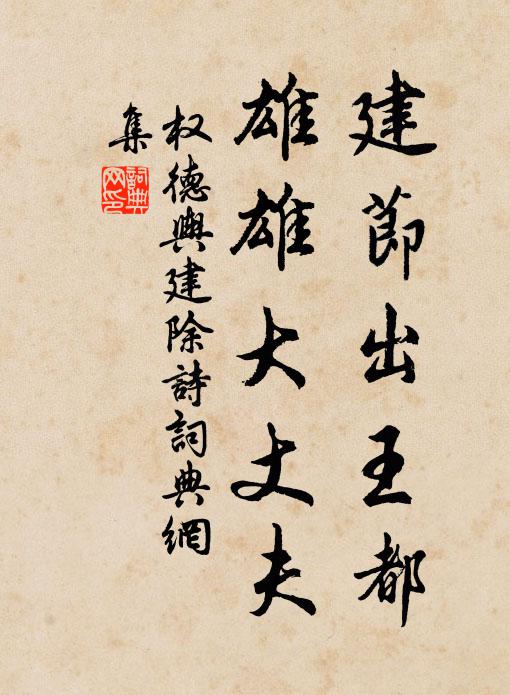 建節出王都
雄雄大丈夫
权德興建除詩詞典網
集
詞典
网印